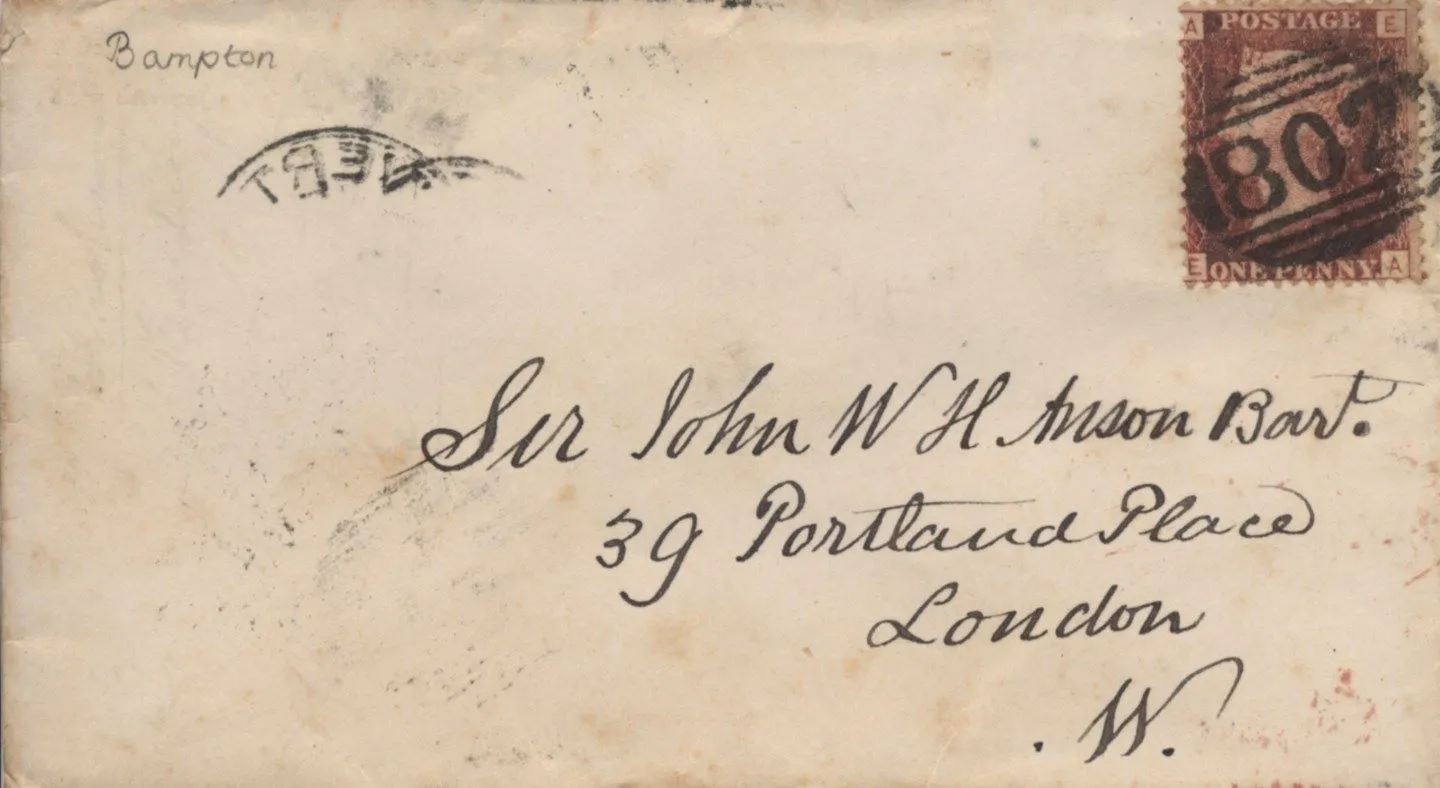 Bampton
A POSTAGE E
802
E ONE PENNY. A
Sir John W H Anson Bart.
39 Portland Place
London
W.